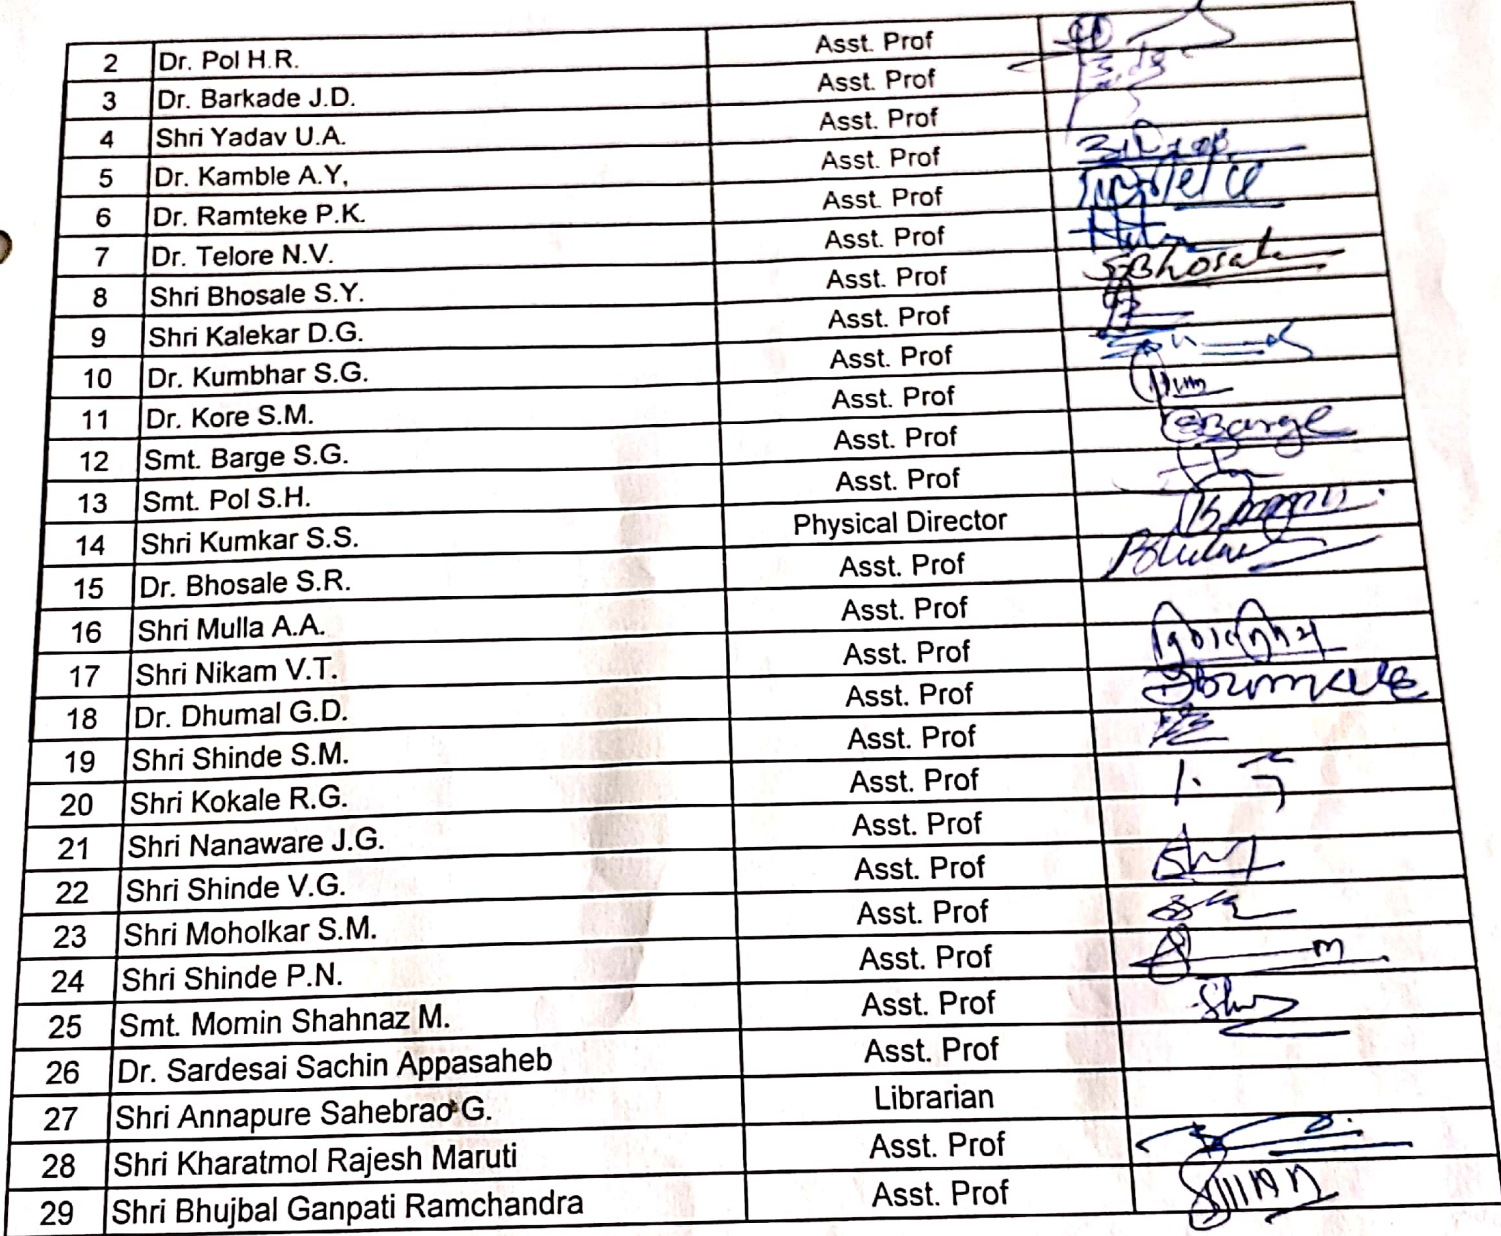 2 Dr. Pol H.R. Asst. Prof
3 Dr. Barkade J.D. Asst. Prof
4 Shri Yadav U.A. Asst. Prof
5 Dr. Kamble A.Y, Asst. Prof
6 Dr. Ramteke P.K. Asst. Prof
7 Dr. Telore N.V. Asst. Prof
8 Shri Bhosale S.Y. Asst. Prof SBhosale
9 Shri Kalekar D.G. Asst. Prof
10 Dr. Kumbhar S.G. Asst. Prof
11 Dr. Kore S.M. Asst. Prof
12 Smt. Barge S.G. Asst. Prof SBarge
13 Smt. Pol S.H. Asst. Prof
14 Shri Kumkar S.S. Physical Director
15 Dr. Bhosale S.R. Asst. Prof
16 Shri Mulla A.A. Asst. Prof
17 Shri Nikam V.T. Asst. Prof
18 Dr. Dhumal G.D. Asst. Prof
19 Shri Shinde S.M. Asst. Prof
20 Shri Kokale R.G. Asst. Prof
21 Shri Nanaware J.G. Asst. Prof
22 Shri Shinde V.G. Asst. Prof
23 Shri Moholkar S.M. Asst. Prof
24 Shri Shinde P.N. Asst. Prof
25 Smt. Momin Shahnaz M. Asst. Prof
26 Dr. Sardesai Sachin Appasaheb Asst. Prof
27 Shri Annapure Sahebrao G. Librarian
28 Shri Kharatmol Rajesh Maruti Asst. Prof
29 Shri Bhujbal Ganpati Ramchandra Asst. Prof